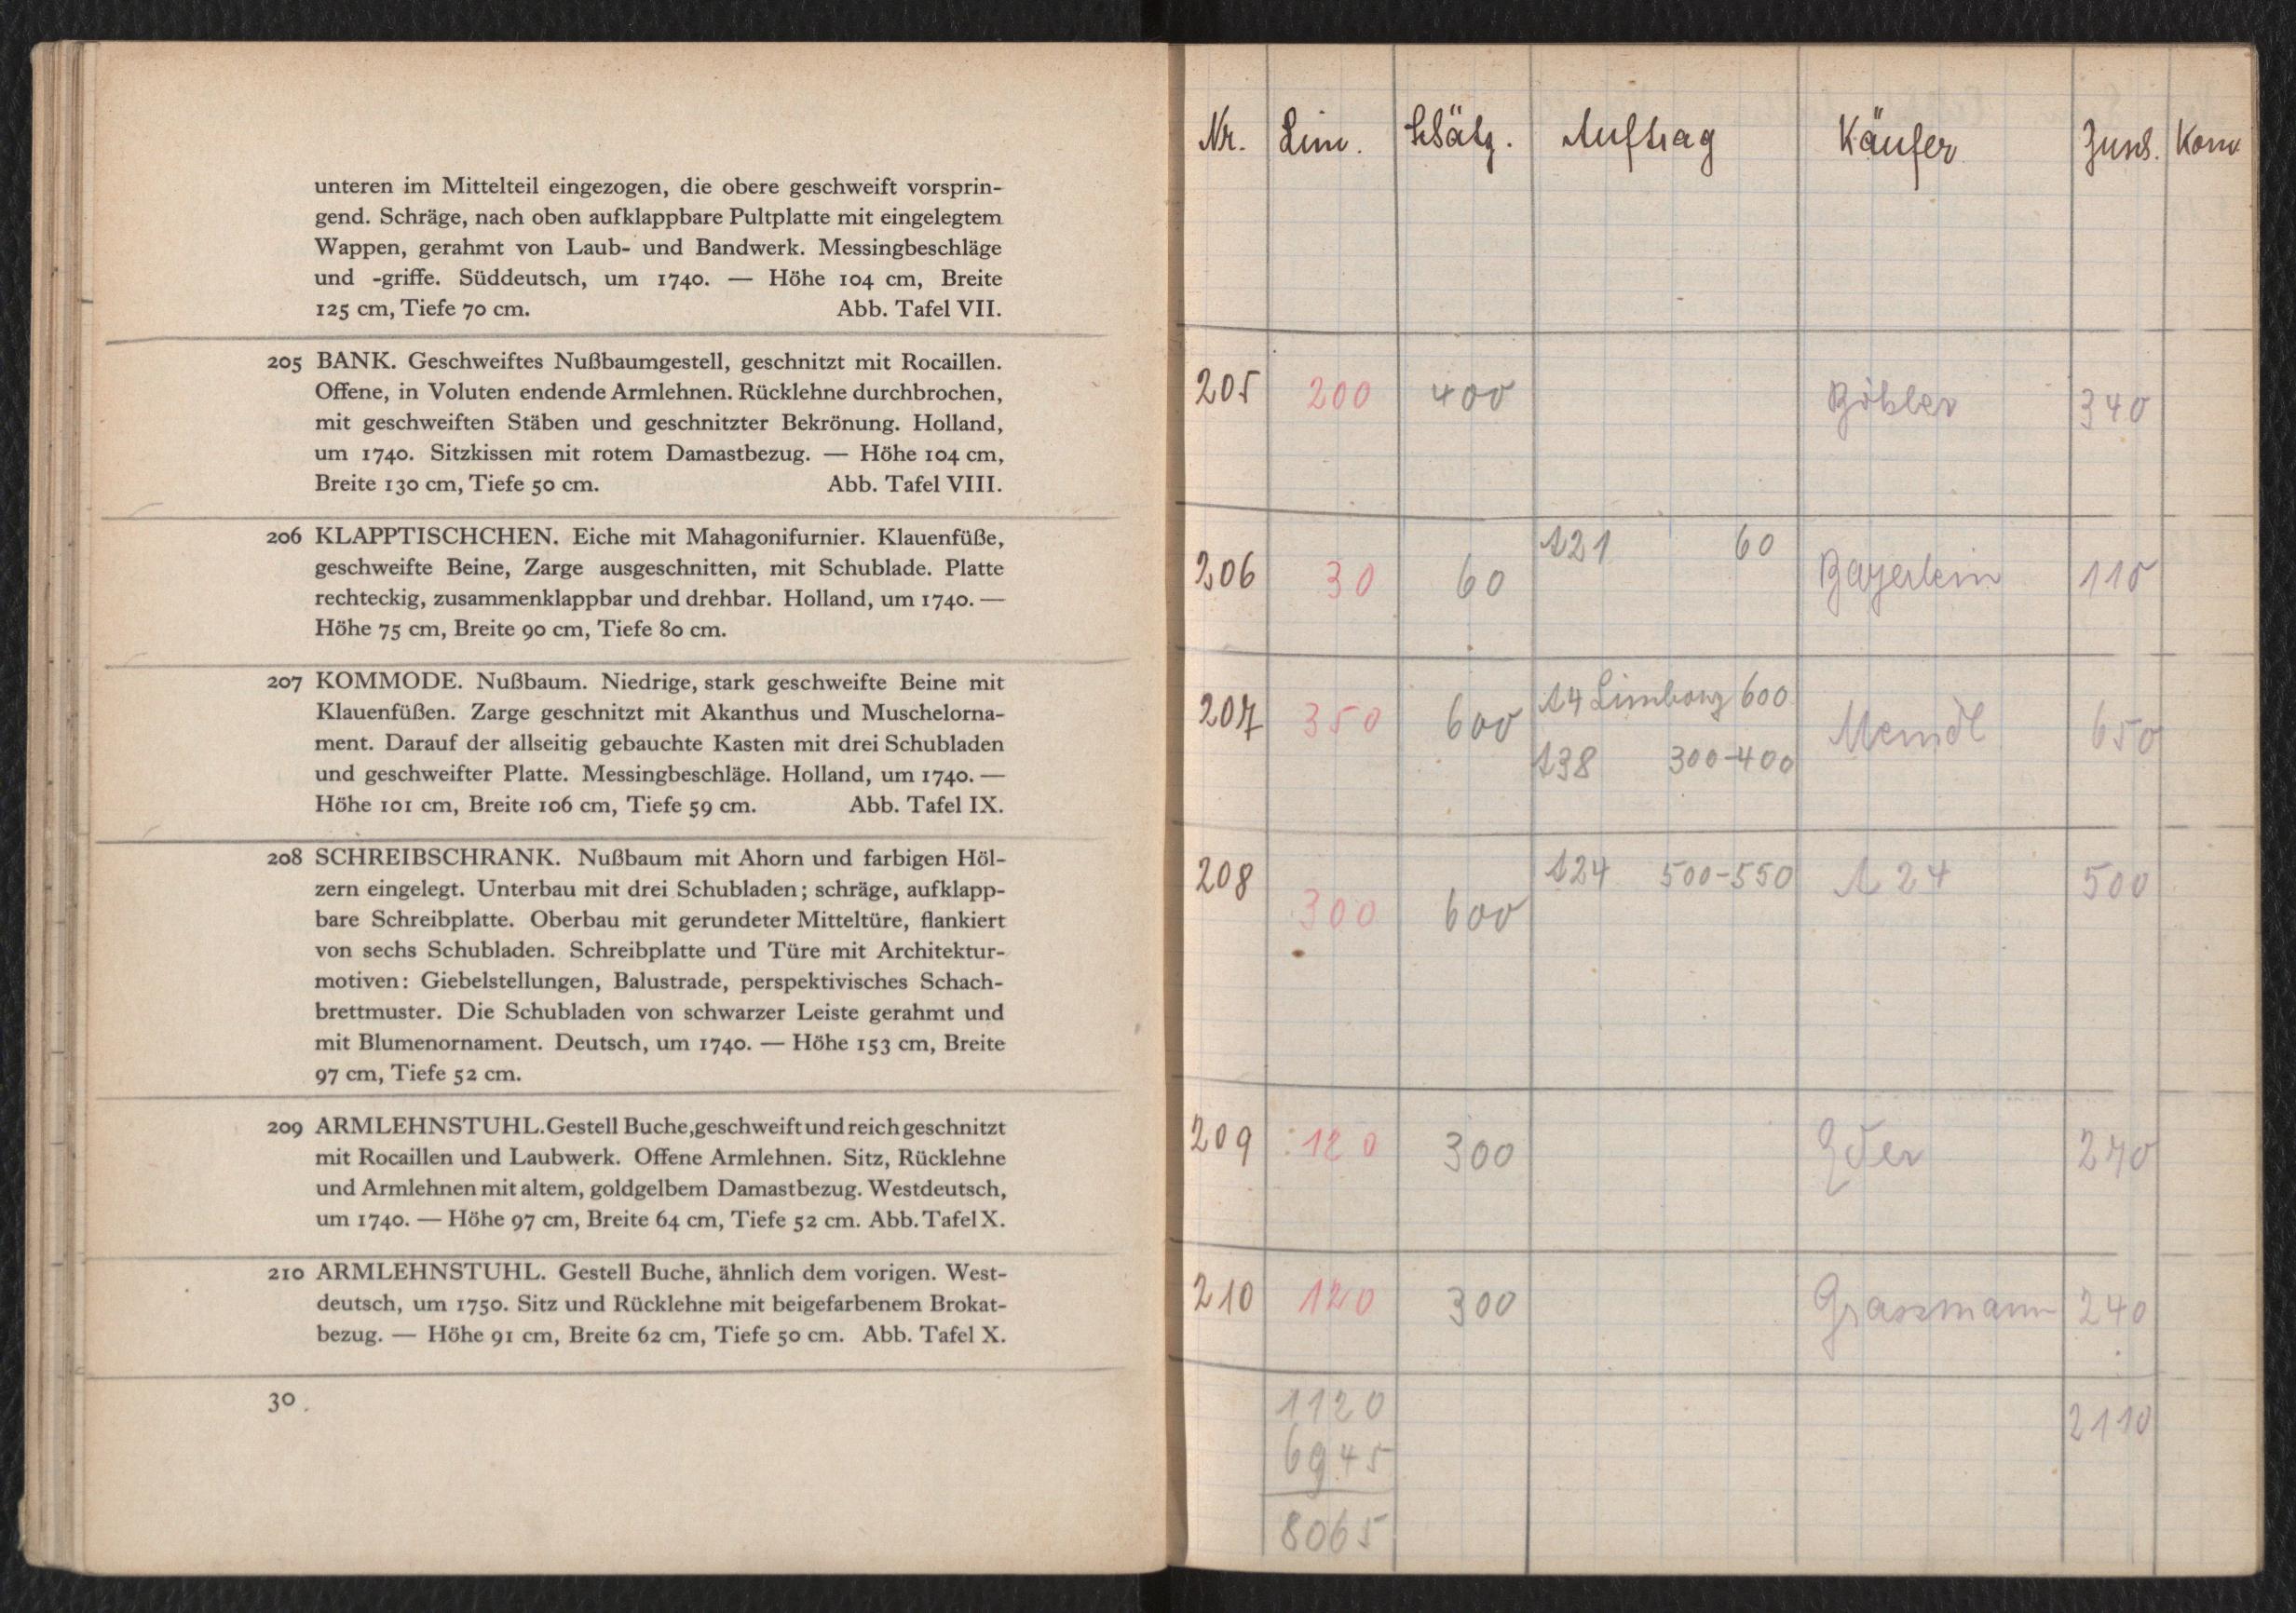 unteren im Mittelteil eingezogen, die obere geschweift vorsprin-
gend. Schräge, nach oben aufklappbare Pultplatte mit eingelegtem
Wappen, gerahmt von Laub- und Bandwerk. Messingbeschläge
und -griffe. Süddeutsch, um 1740. — Höhe 104 cm, Breite
125 cm, Tiefe 70 cm. Abb. Tafel VII.
205 BANK. Geschweiftes Nußbaumgestell, geschnitzt mit Rocaillen.
Offene, in Voluten endende Armlehnen. Rücklehne durchbrochen,
mit geschweiften Stäben und geschnitzter Bekrönung. Holland,
um 1740. Sitzkissen mit rotem Damastbezug. — Höhe 104 cm,
Breite 130 cm, Tiefe 50 cm. Abb. Tafel VIII.
206 KLAPPTISCHCHEN. Eiche mit Mahagonifurnier. Klauenfüße,
geschweifte Beine, Zarge ausgeschnitten, mit Schublade. Platte
rechteckig, zusammenklappbar und drehbar. Holland, um 1740. —
Höhe 75 cm, Breite 90 cm, Tiefe 80 cm.
207 KOMMODE. Nußbaum. Niedrige, stark geschweifte Beine mit
Klauenfüßen. Zarge geschnitzt mit Akanthus und Muschelorna-
ment. Darauf der allseitig gebauchte Kasten mit drei Schubladen
und geschweifter Platte. Messingbeschläge. Holland, um 1740. —
Höhe 101 cm, Breite 106 cm, Tiefe 59 cm. Abb. Tafel IX.
208 SCHREIBSCHRANK. Nußbaum mit Ahorn und farbigen Höl-
zern eingelegt. Unterbau mit drei Schubladen; schräge, aufklapp-
bare Schreibplatte. Oberbau mit gerundeter Mitteltüre, flankiert
von sechs Schubladen. Schreibplatte und Türe mit Architektur-
motiven: Giebelstellungen, Balustrade, perspektivisches Schach-
brettmuster. Die Schubladen von schwarzer Leiste gerahmt und
mit Blumenornament. Deutsch, um 1740. — Höhe 153 cm, Breite
97 cm, Tiefe 52 cm.
209 ARMLEHNSTUHL. Gestell Buche, geschweift und reich geschnitzt
mit Rocaillen und Laubwerk. Offene Armlehnen. Sitz, Rücklehne
und Armlehnen mit altem, goldgelbem Damastbezug. Westdeutsch,
um 1740. — Höhe 97 cm, Breite 64 cm, Tiefe 52 cm. Abb. Tafel X.
210 ARMLEHNSTUHL. Gestell Buche, ähnlich dem vorigen. West-
deutsch, um 1750. Sitz und Rücklehne mit beigefarbenem Brokat-
bezug. — Höhe 91 cm, Breite 62 cm, Tiefe 50 cm. Abb. Tafel X.
30
Nr. Lim. Schätz. Auftrag Käufer Zusch. Kom
205 200 400 Böhler 340
A21 60
206 30 60 Bayerlein 110
A4 Limburg 600
207 350 600 Meindl 650
A38 300-400
208 A24 500-550 A 24 500
300 600
209 120 300 Eder 270
210 120 300 Grassmann 240
1120 2110
6945
8065